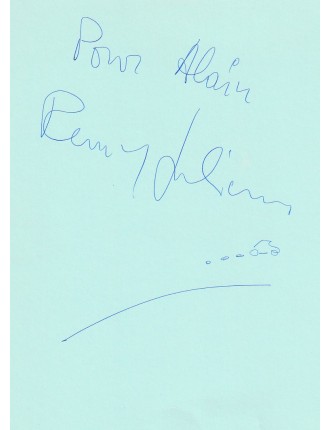 Pour Alain
Remy Julienne